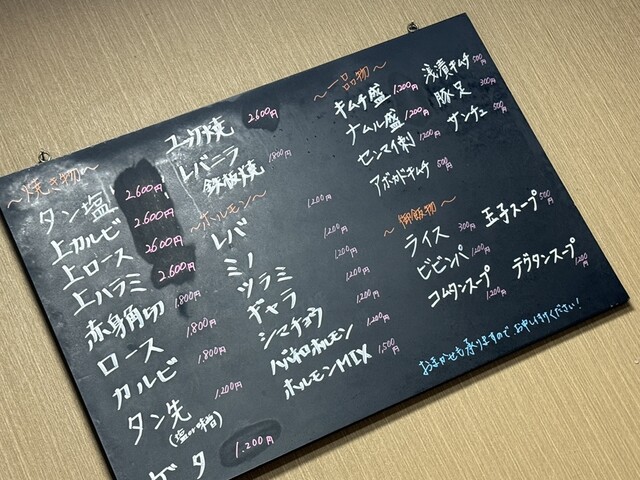 〜焼き物〜
タン塩 2.600円
上カルビ 2.600円
上ロース 2600円
上ハラミ 2.600円
赤身角切 1.800円
ロース 1.800円
カルビ 1.800円
タン先 1.200円
(塩or味噌)
ゲタ 1.200円
ユッケ焼 2600円
レバニラ 1.800円
鉄板焼
〜ホルモン〜
レバ 1.200円
ミノ 1.200円
ツラミ 1.200円
ギャラ 1.200円
シマチョウ 1.200円
ハバネロホルモン 1.200円
ホルモンMIX 1,500円
〜一品物〜
キムチ盛 1.200円
ナムル盛 1.200円
センマイ刺 1.200円
アボカドキムチ 500円
浅漬キムチ 500円
豚足 300円
サンチュ 500円
〜御飯物〜
ライス 300円
ビビンバ 1.200円
コムタンスープ 1.200円
玉子スープ 500円
テグタンスープ 1.200円
おまかせも承りますので お申し付けください!